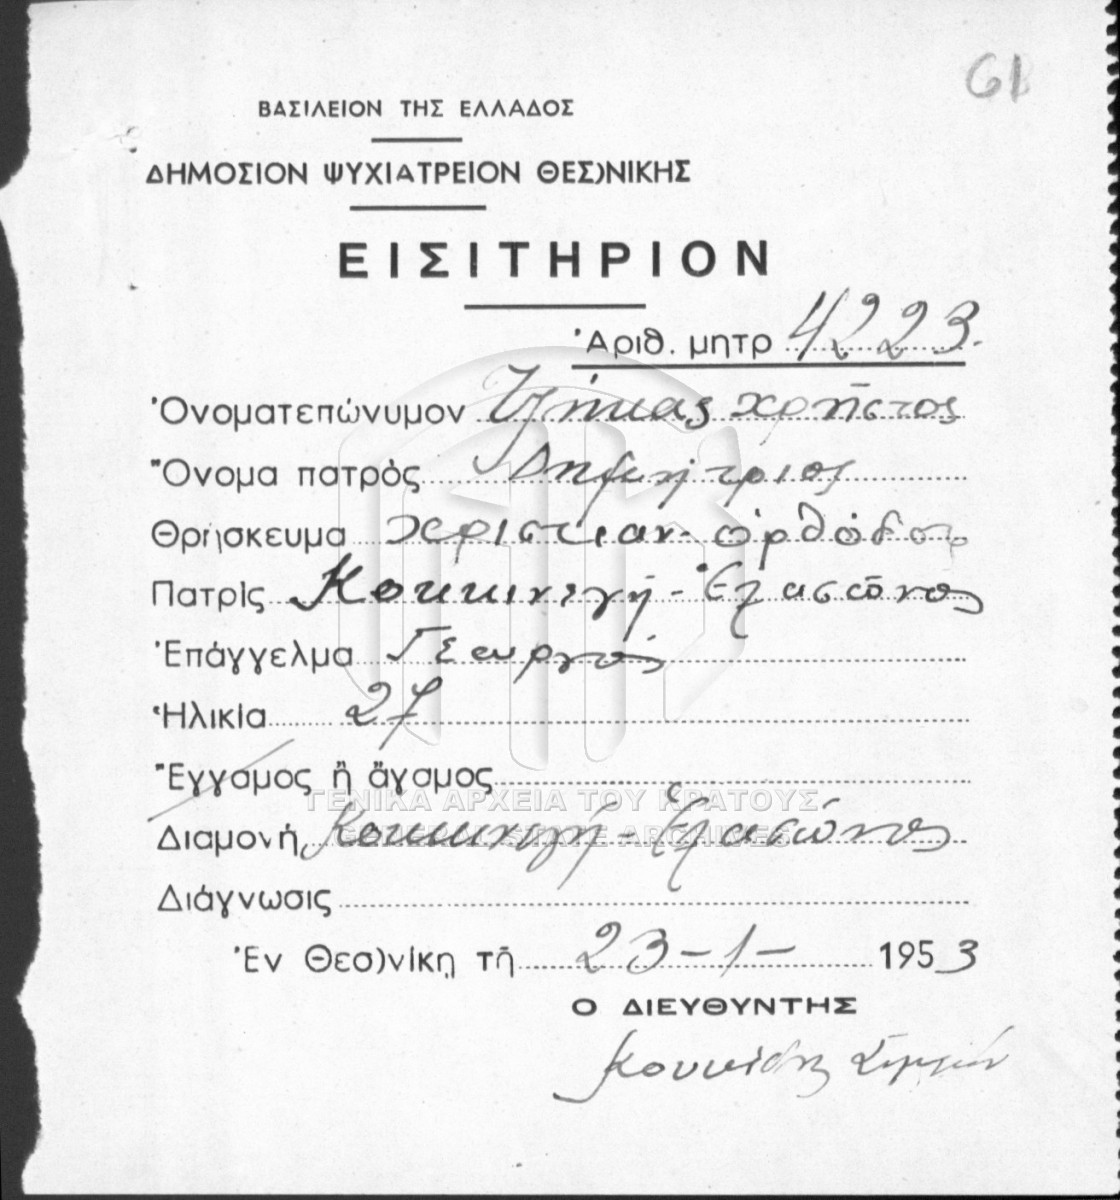 61
ΒΑΣΙΛΕΙΟΝ ΤΗΣ ΕΛΛΑΔΟΣ
ΔΗΜΟΣΙΟΝ ΨΥΧΙΑΤΡΕΙΟΝ ΘΕΣ)ΝΙΚΗΣ
ΕΙΣΙΤΗΡΙΟΝ
Ἀριθ. μητρ 4223.
Ὀνοματεπώνυμον χρῆστος
Ὄνομα πατρὸς Δημήτριος
Θρήσκευμα χριστιαν. ὀρθόδοξ
Πατρὶς Κοκκινογή - Ἐλασσῶνος
Ἐπάγγελμα Γεωργός
Ἡλικία 27
Ἔγγαμος ἢ ἄγαμος
ΓΕΝΙΚΑ ΑΡΧΕΙΑ ΤΟΥ ΚΡΑΤΟΥΣ
GENERAL STATE ARCHIVES
Διαμονὴ Κοκκινογή - Ἐλασῶνος
Διάγνωσις
Ἐν Θεσ)νίκῃ τῇ 23-1- 1953
Ο ΔΙΕΥΘΥΝΤΗΣ